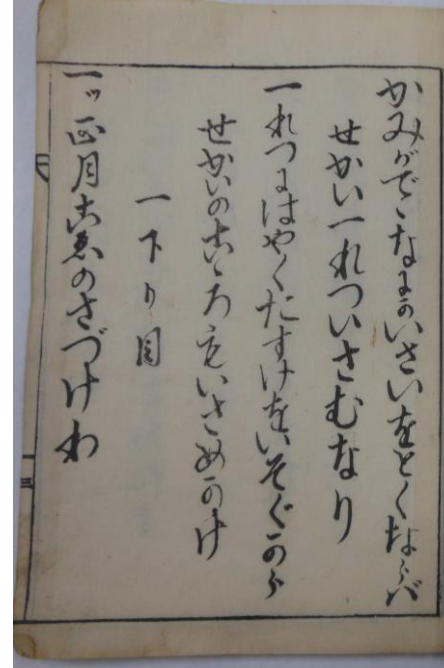 かみがでゝなにかいさいをとくならバ
せかい一れついさむなり
一れつにはやくたすけをいそぐから
せかいのこゝろもいさめかけ
一下り目
一ッ正月こゑのさづけわ
三